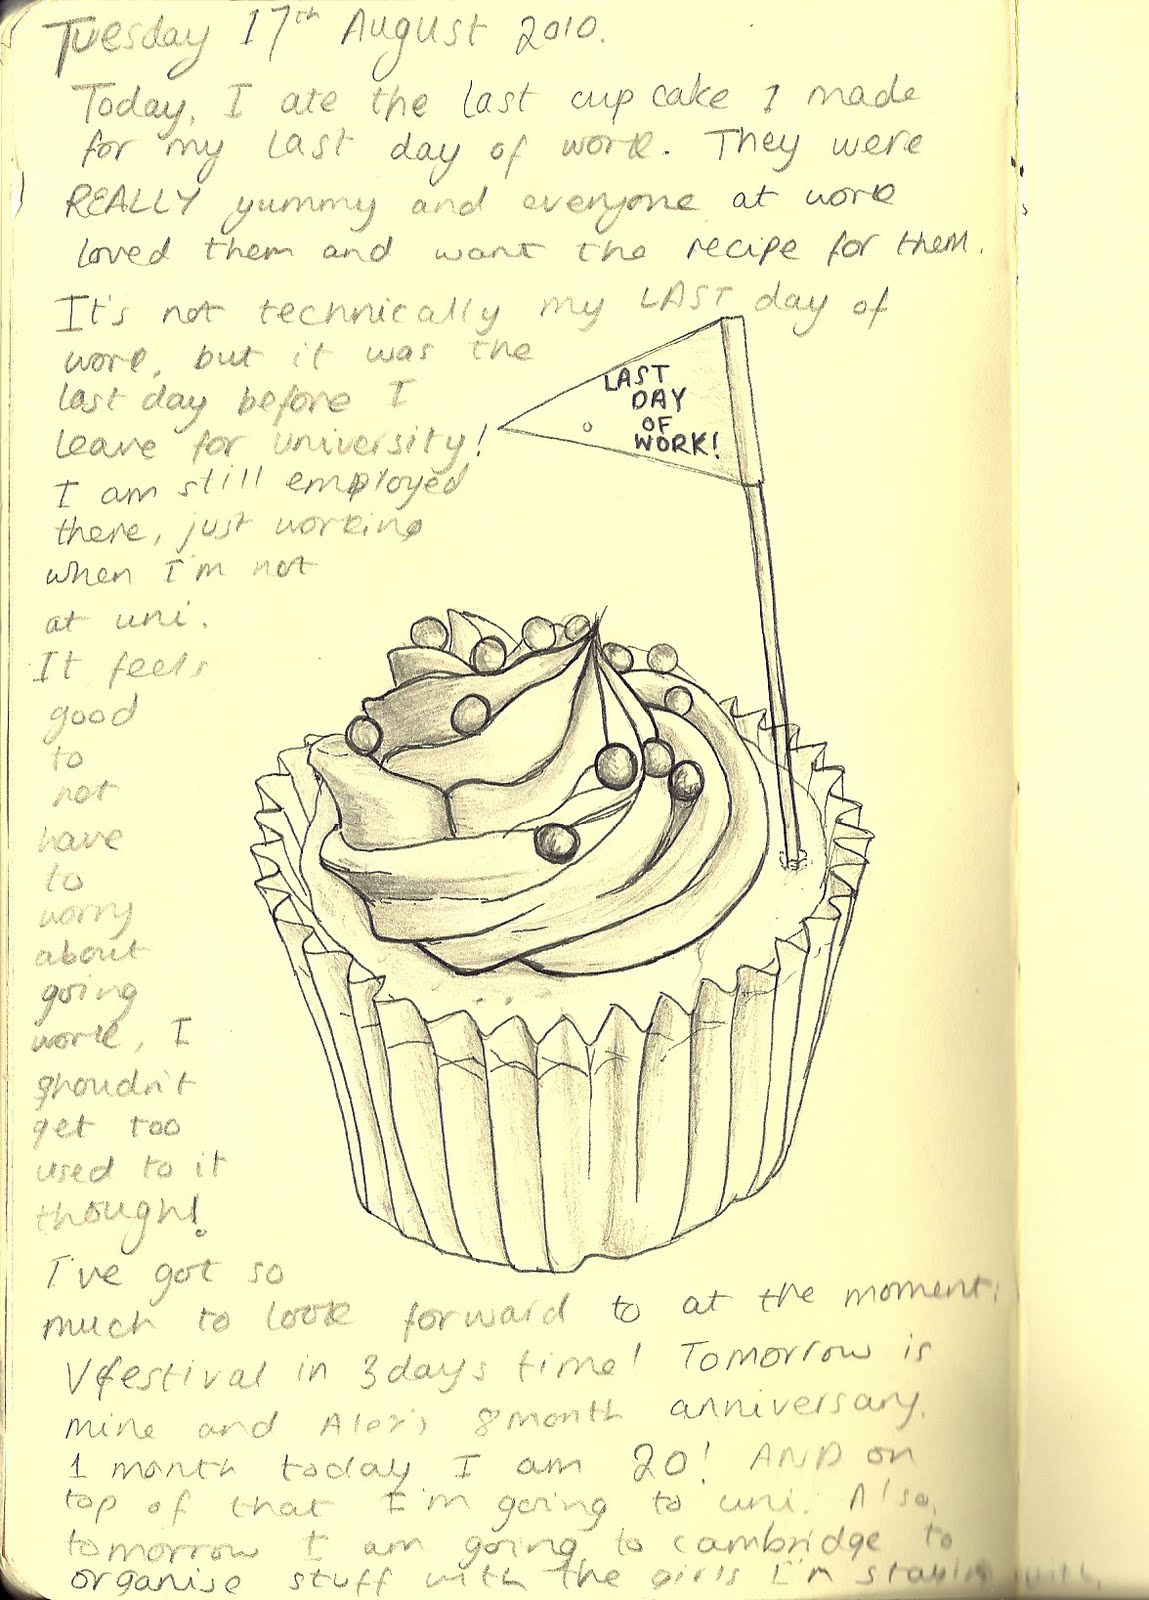 Tuesday 17th August 2010.
Today, I ate the last cup cake I made
for my last day of work. They were
REALLY yummy and everyone at work
loved them and want the recipe for them.
It's not technically my LAST day of
work, but it was the
last day before I
leave for university!
I am still employed
there, just working
when I'm not
at uni.
It feels
good
to
not
have
to
worry
about
going
work, I
shoudn't
get too
used to it
though!
I've got so
much to look forward to at the moment;
Vfestival in 3 days time! Tomorrow is
mine and Alex's 8 month anniversary.
1 month today I am 20! AND on
top of that I'm going to uni. Also,
tomorrow I am going to cambridge to
organise stuff with the girls I'm staying with.
LAST
DAY
OF
WORK!